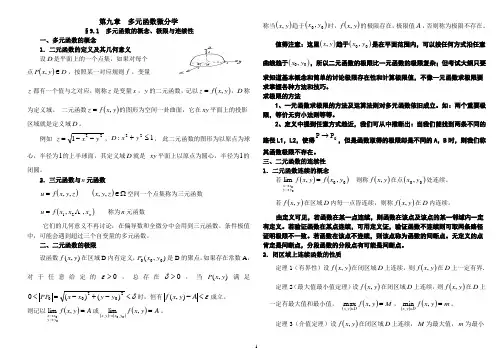 第九章 多元函数微分学
§9.1 多元函数的概念、极限与连续性
一、多元函数的概念
1．二元函数的定义及其几何意义
设D是平面上的一个点集，如果对每个
点P(x,y)∈D，按照某一对应规则f，变量
z都有一个值与之对应，则称z是变量x，y的二元函数，记以z=f(x,y)，D称
为定义域。 二元函数z=f(x,y)的图形为空间一卦曲面，它在xy平面上的投影
区域就是定义域D。
例如 z=√(1-x²-y²)，D: x²+y²≤1，此二元函数的图形为以原点为球
心，半径为1的上半球面，其定义域D就是 xy平面上以原点为圆心，半径为1的
闭圆。
2．三元函数与n元函数
u=f(x,y,z) (x,y,z)∈Ω空间一个点集称为三元函数
u=f(x₁,x₂,Λ,xₙ) 称为n元函数
它们的几何意义不再讨论，在偏导数和全微分中会用到三元函数。条件极值
中，可能会遇到超过三个自变量的多元函数。
二、二元函数的极限
设函数f(x,y)在区域D内有定义，P₀(x₀,y₀)是D的聚点，如果存在常数A，
对于任意给定的ε>0，总存在δ>0，当P(x,y)满足
0<|PP₀|=√((x-x₀)²+(y-y₀)²)<δ时，恒有|f(x,y)-A|<ε成立。
则记以lim x→x₀ y→y₀ f(x,y)=A或lim (x,y)→(x₀,y₀) f(x,y)=A。
称当(x,y)趋于(x₀,y₀)时，f(x,y)的极限存在，极限值A，否则称为极限不存在。
值得注意：这里(x,y)趋于(x₀,y₀)是在平面范围内，可以按任何方式沿任意
曲线趋于(x₀,y₀)，所以二元函数的极限比一元函数的极限复杂；但考试大纲只要
求知道基本概念和简单的讨论极限存在性和计算极限值，不像一元函数求极限要
求掌握各种方法和技巧。
求极限的方法
1、一元函数求极限的方法及运算法则对多元函数依旧成立。如：两个重要极
限，等价无穷小法则等等。
2、定义中提到任意方式趋近，我们可从中推断出：当我们能找到两条不同的
路径L1，L2，使得P→P₀，但是函数取得的极限却是不同的A，B时，则我们称
其函数极限不存在。
三、二元函数的连续性
1．二元函数连续的概念
若lim x→x₀ y→y₀ f(x,y)=f(x₀,y₀) 则称f(x,y)在点(x₀,y₀)处连续。
若f(x,y)在区域D内每一点皆连续，则称f(x,y)在D内连续。
由定义可见，若函数在某一点连续，则函数在该点及该点的某一邻域内一定
有定义。若验证函数在某点连续，可用定义证，验证函数不连续则可取两条路径
证明极限不一致，若函数在该点不连续，则该点称为函数的间断点。无定义的点
肯定是间断点，分段函数的分段点有可能是间断点。
2．闭区域上连续函数的性质
定理1（有界性）设f(x,y)在闭区域D上连续，则f(x,y)在D上一定有界。
定理2（最大值最小值定理）设f(x,y)在闭区域D上连续，则f(x,y)在D上
一定有最大值和最小值， max (x,y)∈D f(x,y)=M，min (x,y)∈D f(x,y)=m。
定理3（介值定理）设f(x,y)在闭区域D上连续，M为最大值，m为最小